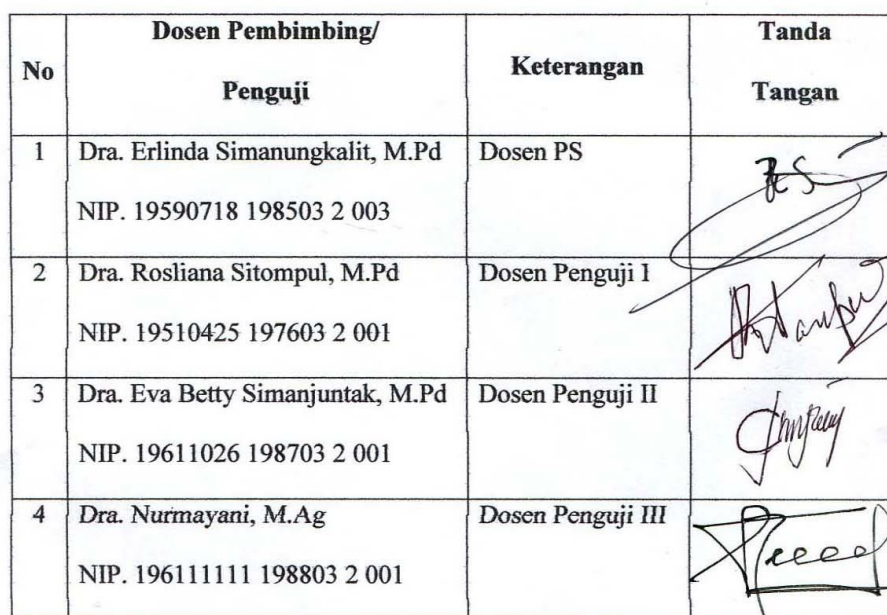 No
Dosen Pembimbing/
Penguji
Keterangan
Tanda
Tangan
1
Dra. Erlinda Simanungkalit, M.Pd
NIP. 19590718 198503 2 003
Dosen PS
2
Dra. Rosliana Sitompul, M.Pd
NIP. 19510425 197603 2 001
Dosen Penguji I
3
Dra. Eva Betty Simanjuntak, M.Pd
NIP. 19611026 198703 2 001
Dosen Penguji II
4
Dra. Nurmayani, M.Ag
NIP. 196111111 198803 2 001
Dosen Penguji III